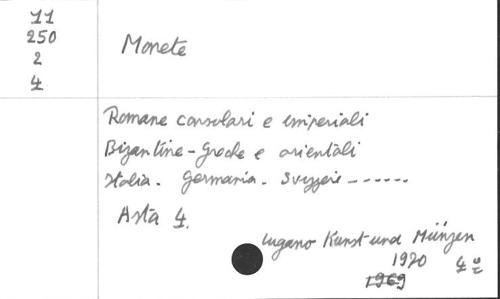 11
250
2
4
Monete
Romane consolari e imperiali
Bizantine - Greche e orientali
Italia. Germania. Svizzere ------
Asta 4.
Lugano Kunst und Münzen
1970 4º
1969